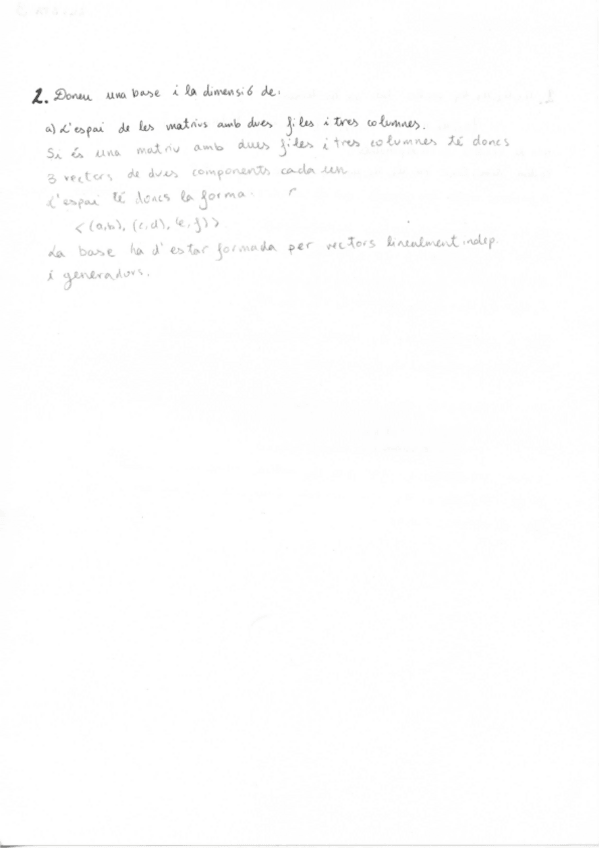 2. Doneu una base i la dimensió de:
a) L'espai de les matrius amb dues files i tres columnes.
Si és una matriu amb dues files i tres columnes té doncs
3 vectors de dues components cada un
L'espai té doncs la forma:
<(a,b), (c,d), (e,f)>
La base ha d'estar formada per vectors linealment indep.
i generadors.